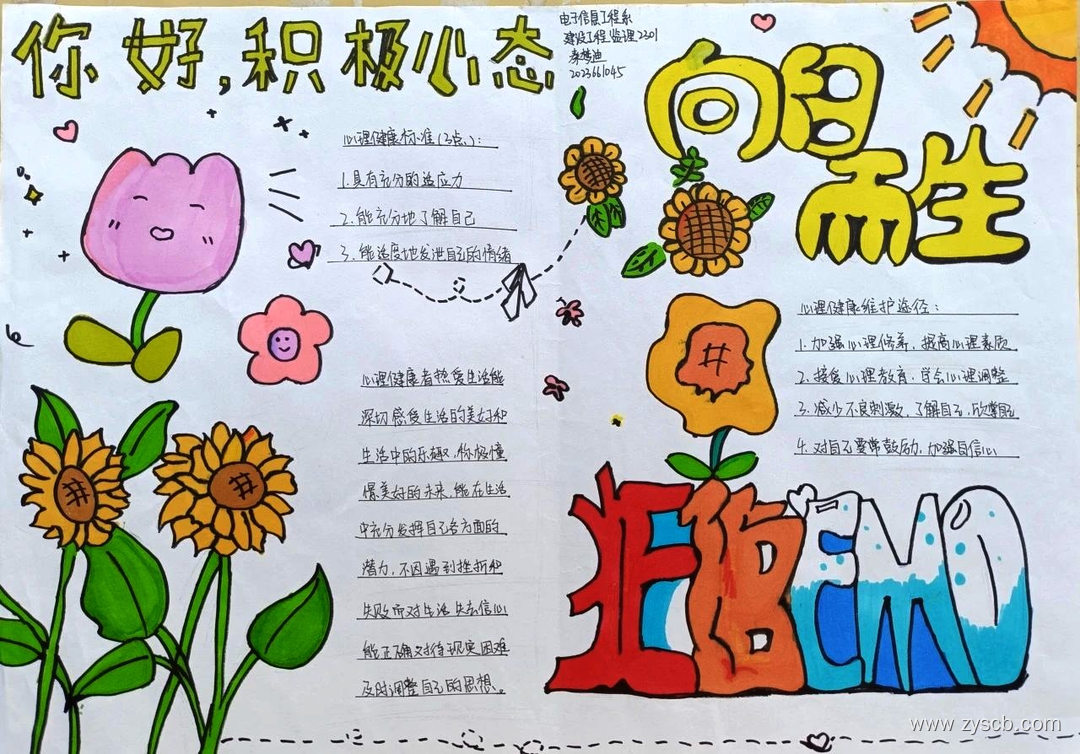 你好,积极心态
电子信息工程系
建设工程监理2301
2023661045
向阳而生
心理健康标准(3点):
1.具有充分的适应力
2.能充分地了解自己
3.能适度地发泄自己的情绪
心理健康者热爱生活能
深切感受生活的美好和
生活中的乐趣,积极憧
憬美好的未来,能在生活
中充分发挥自己各方面的
潜力,不因遇到挫折和
失败而对生活失去信心
能正确对待现实困难
及时调整自己的思想。
心理健康维护途径:
1.加强心理修养,提高心理素质
2.接受心理教育,学会心理调整
3.减少不良刺激,了解自己,欣赏自己
4.对自己要常鼓励,加强自信心
拒绝EMO
www.zyscb.com